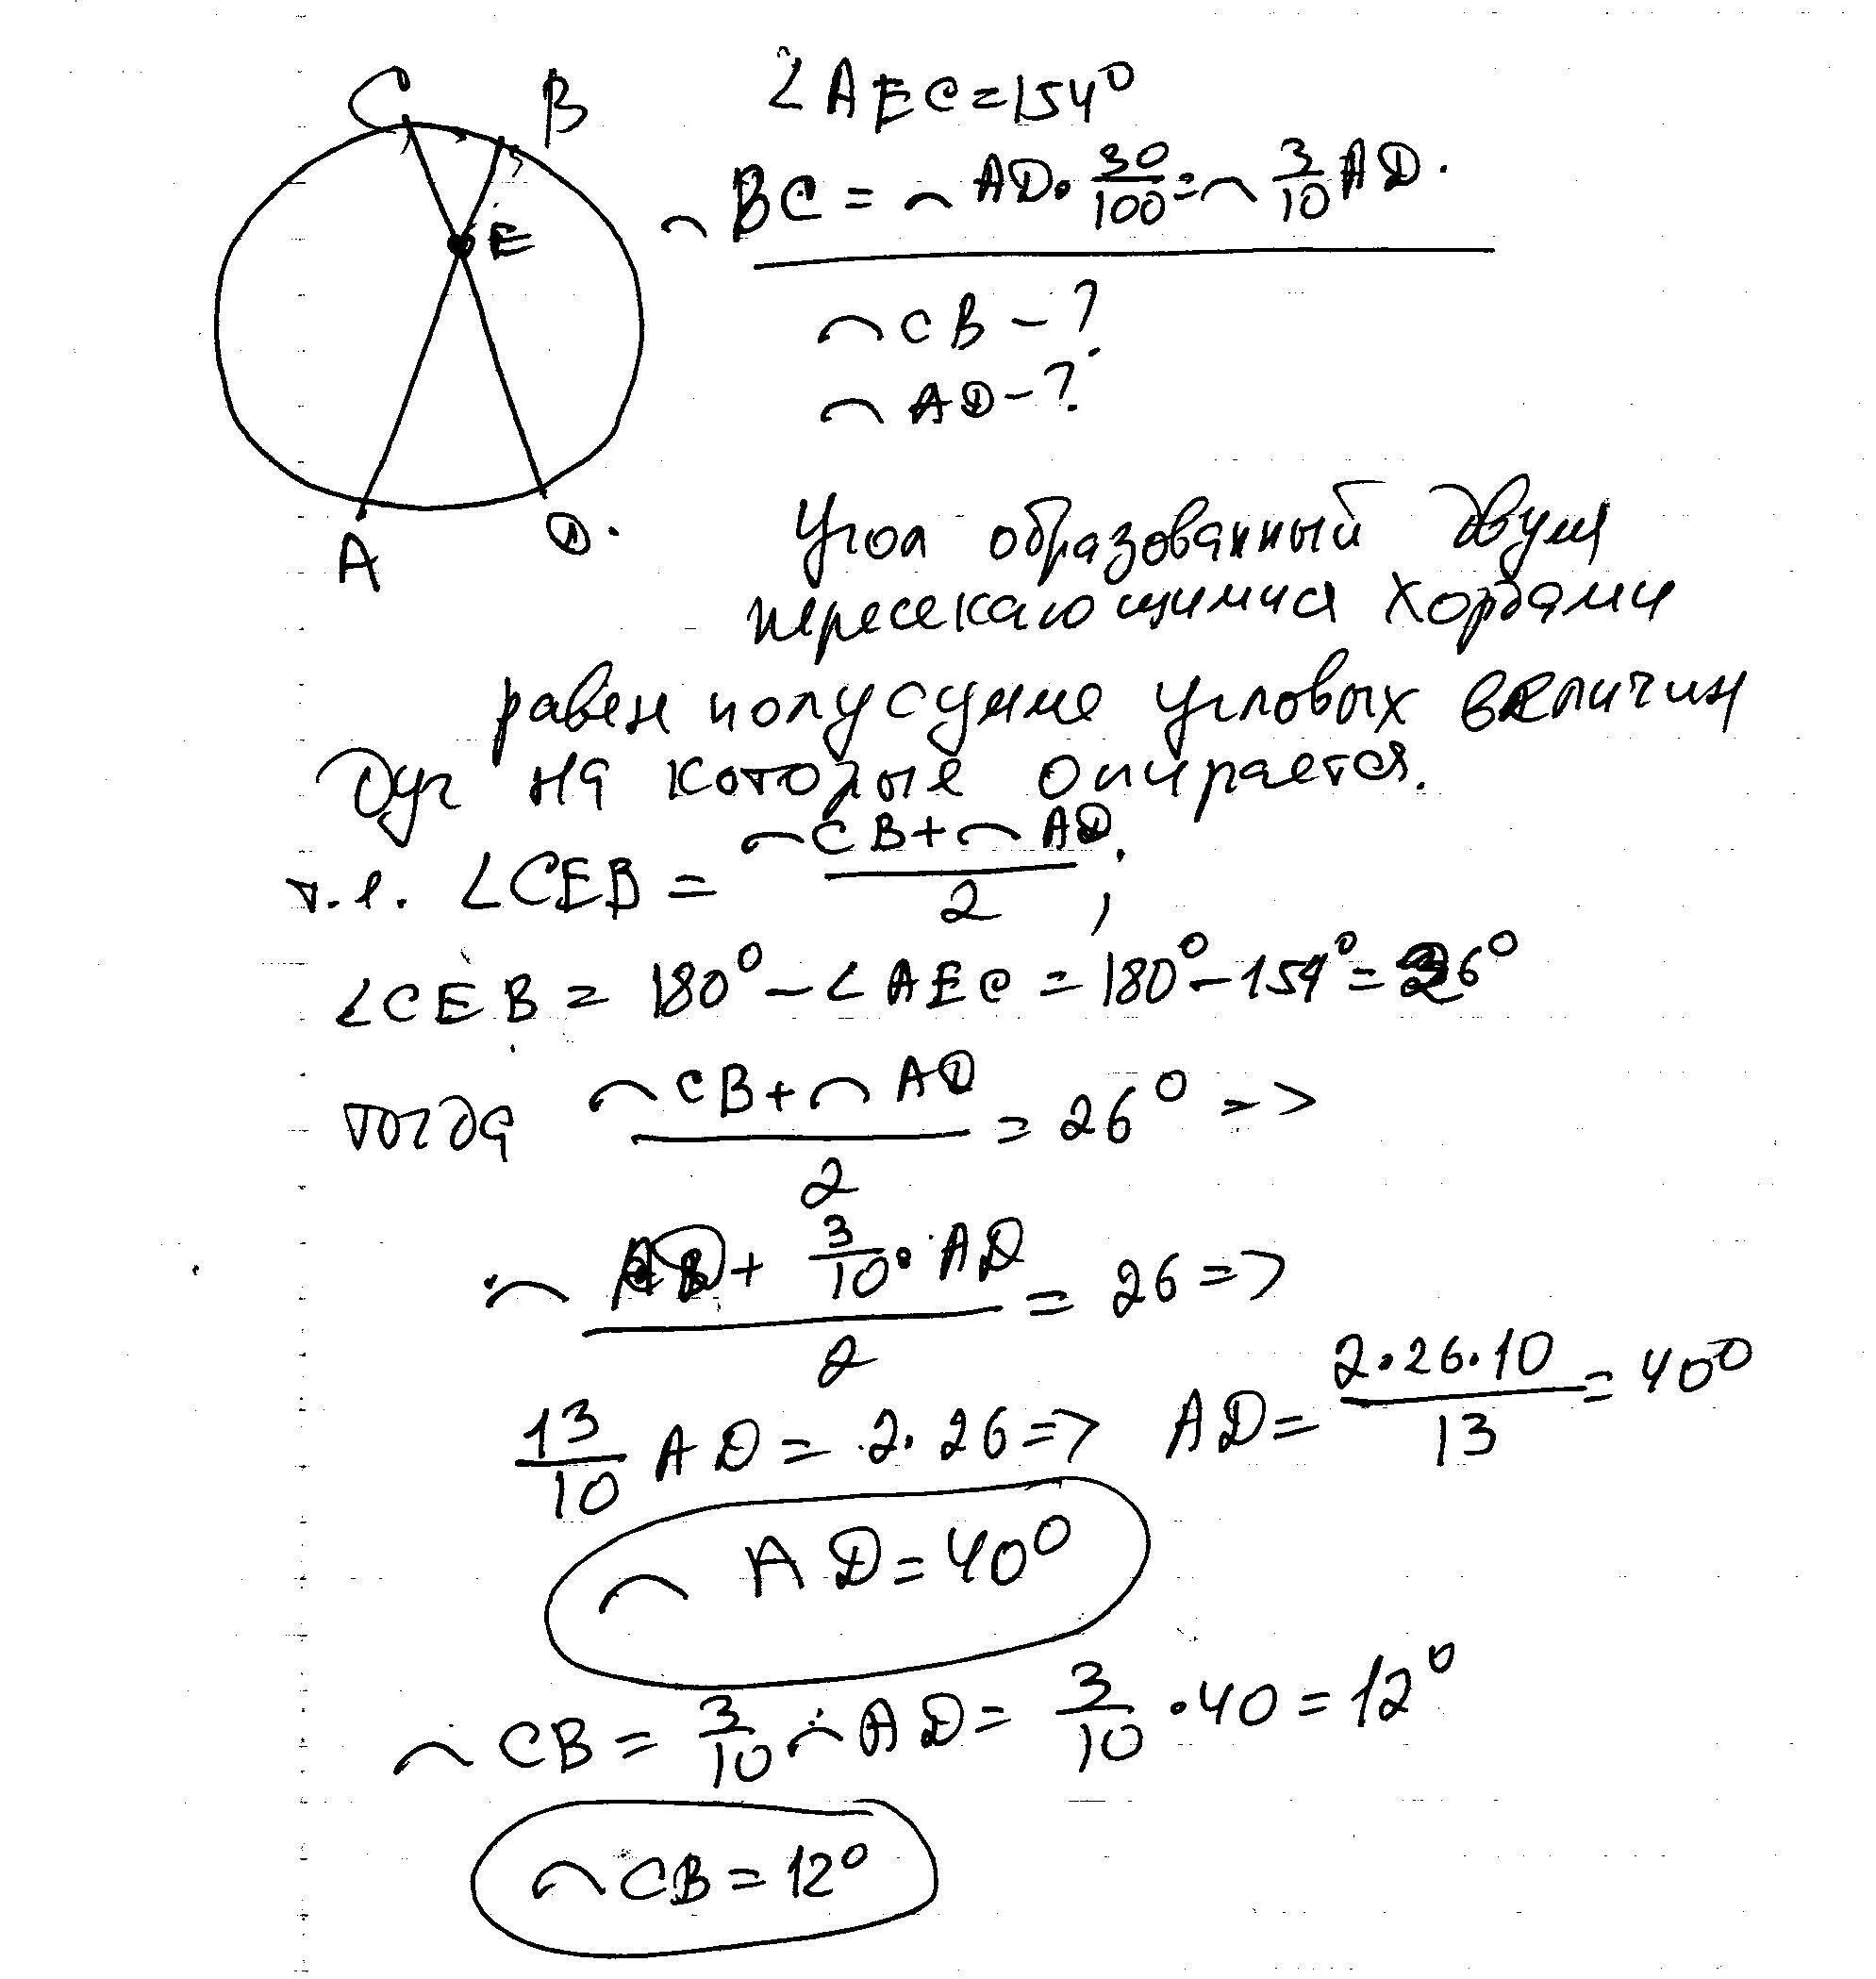 C B
E
A D.
∠AEC=154°
⌒BC = ⌒AD · 30/100 = ⌒ 3/10 AD.
⌒CB – ?
⌒AD – ?
Угол образованный двумя
пересекающимися хордами
равен полусумме угловых величин
дуг на которые опирается.
т.е. ∠CEB = (⌒CB + ⌒AD)/2 ;
∠CEB = 180° – ∠AEC = 180° – 154° = 26°
тогда (⌒CB + ⌒AD)/2 = 26° =>
⌒ (AD + 3/10 · AD)/2 = 26 =>
13/10 AD = 2·26 => AD = (2·26·10)/13 = 40°
⌒AD = 40°
⌒CB = 3/10 ⌒AD = 3/10 · 40 = 12°
⌒CB = 12°